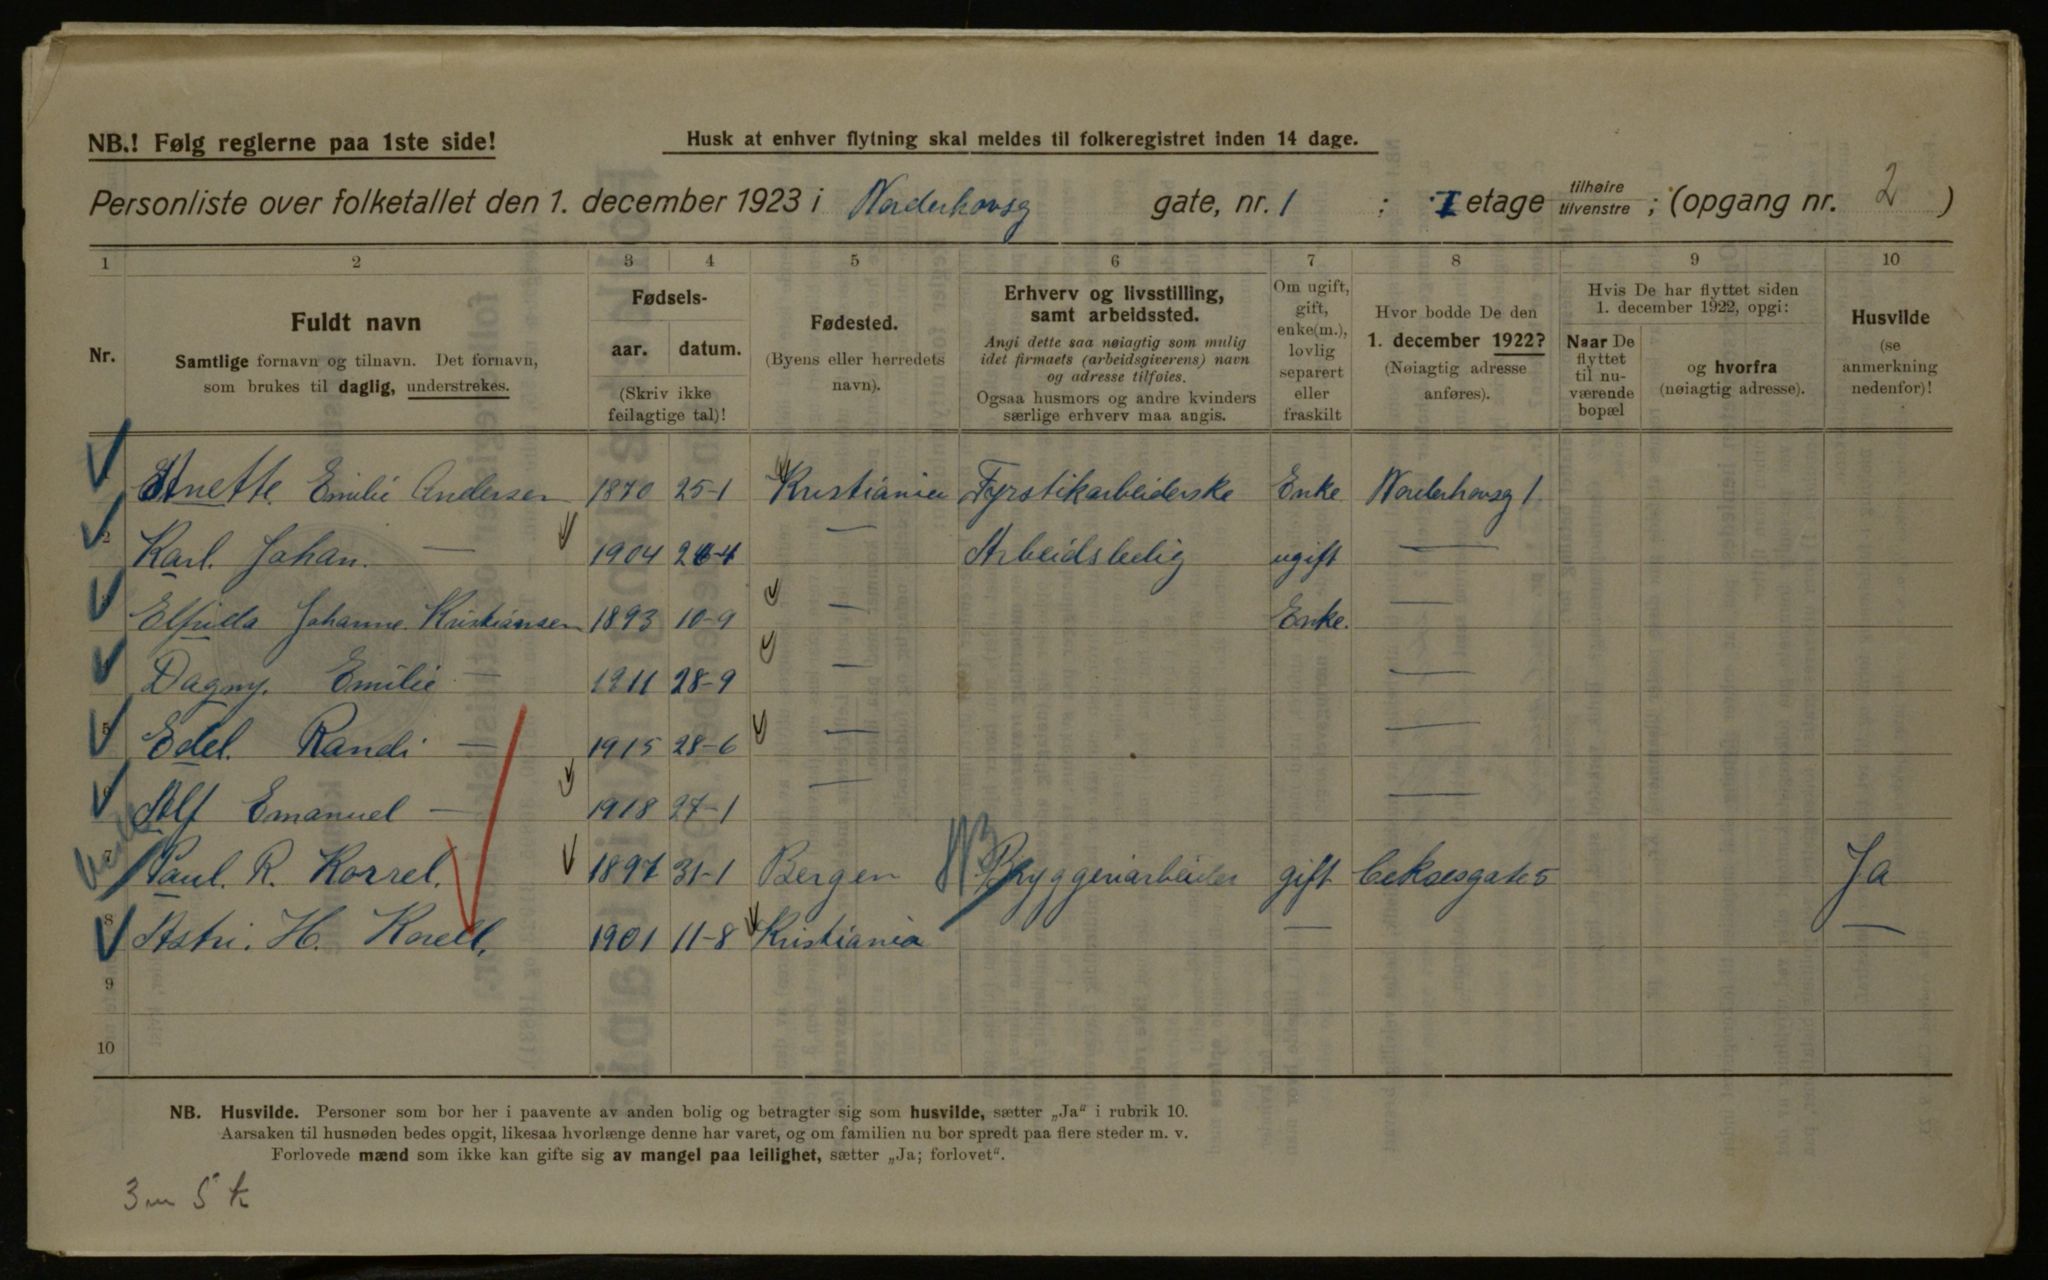 NB.! Følg reglerne paa 1ste side!
Husk at enhver flytning skal meldes til folkeregistret inden 14 dage.
Personliste over folketallet den 1. december 1923 i Norderhovsg gate, nr. 1 ; I etage tilhøire tilvenstre ; (opgang nr. 2 )
1 2 3 4 5 6 7 8 9 10
Nr.
Fuldt navn
Samtlige fornavn og tilnavn. Det fornavn,
som brukes til daglig, understrekes.
Fødsels-
aar. datum.
(Skriv ikke
feilagtige tal)!
Fødested.
(Byens eller herredets
navn).
Erhverv og livsstilling,
samt arbeidssted.
Angi dette saa nøiagtig som mulig
idet firmaets (arbeidsgiverens) navn
og adresse tilføies.
Ogsaa husmors og andre kvinders
særlige erhverv maa angis.
Om ugift,
gift,
enke(m.),
lovlig
separert
eller
fraskilt
Hvor bodde De den
1. december 1922?
(Nøiagtig adresse
anføres).
Hvis De har flyttet siden
1. december 1922, opgi:
Naar De
flyttet
til nu-
værende
bopæl
og hvorfra
(nøiagtig adresse).
Husvilde
(se
anmerkning
nedenfor)!
Anette Emilie Andersen 1870 25-1 Kristiania Fyrstikarbeiderske Enke Norderhovsg 1.
2 Karl. Johan. — 1904 26-4 — Arbeidsledig ugift —
Elfrida Johanne. Kristiansen 1893 10-9 — Enke. —
Dagny. Emilie — 1911 28-9 — —
5 Edel. Randi — 1915 28-6 — —
6 Alf Emanuel — 1918 27-1 — —
7 Paul. R. Korrel. 1897 31-1 Bergen Bryggeriarbeider gift Ja
8 Astri. H. Korell. 1901 11-8 Kristiania — —
9
10
NB. Husvilde. Personer som bor her i paavente av anden bolig og betragter sig som husvilde, sætter „Ja“ i rubrik 10.
Aarsaken til husnøden bedes opgit, likesaa hvorlænge denne har varet, og om familien nu bor spredt paa flere steder m. v.
Forlovede mænd som ikke kan gifte sig av mangel paa leilighet, sætter „Ja; forlovet“.
3 m 5 k